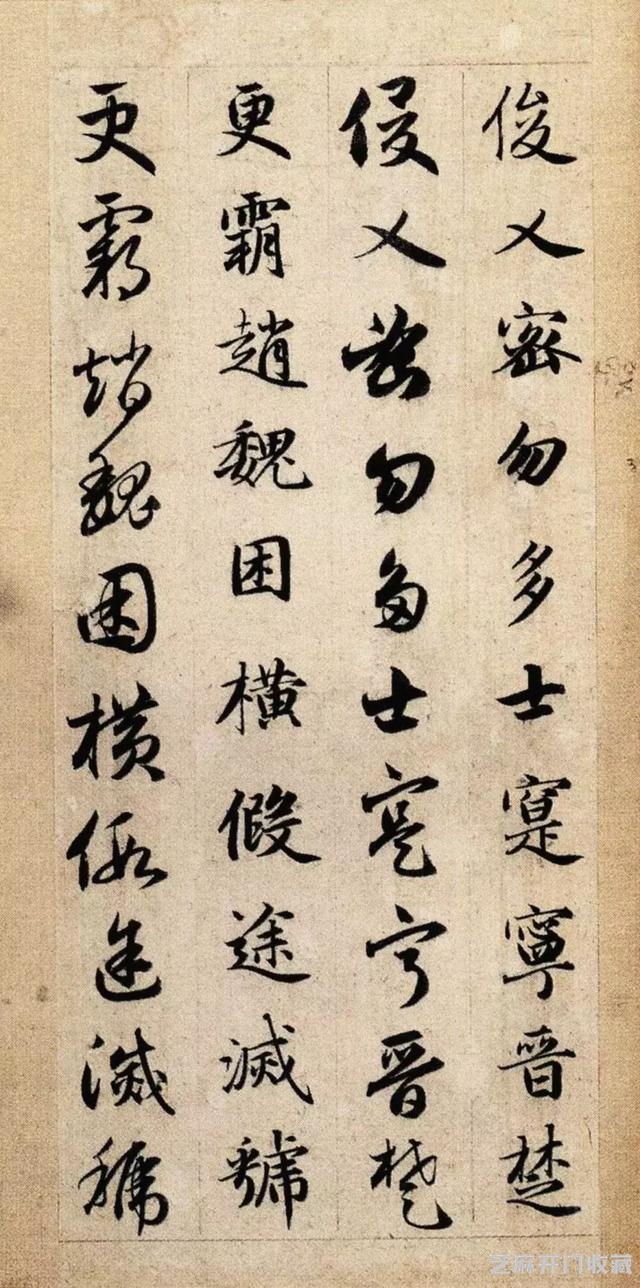 俊乂密勿多士寔寧晉楚
俊乂密勿多士寔寧晉楚
更霸趙魏困橫假途滅虢
更霸趙魏困橫假途滅虢
芝麻开门收藏